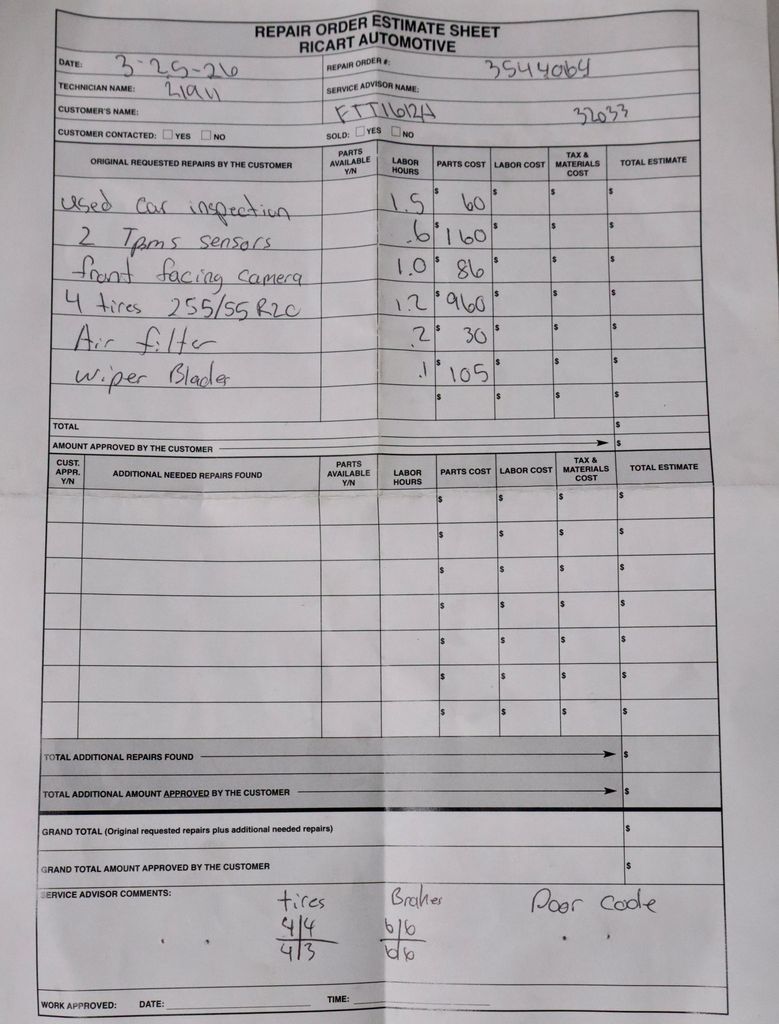 REPAIR ORDER ESTIMATE SHEET
RICART AUTOMOTIVE
DATE: 3-25-26 REPAIR ORDER #: 3544064
TECHNICIAN NAME: SERVICE ADVISOR NAME:
CUSTOMER'S NAME: FTT1612A 32033
CUSTOMER CONTACTED: YES NO SOLD: YES NO
ORIGINAL REQUESTED REPAIRS BY THE CUSTOMER PARTS AVAILABLE Y/N LABOR HOURS PARTS COST LABOR COST TAX & MATERIALS COST TOTAL ESTIMATE
used car inspection 1.5 $ 60 $ $ $
2 Tpms sensors .6 $ 160 $ $ $
front facing camera 1.0 $ 86 $ $ $
4 tires 255/55 R20 1.2 $ 960 $ $ $
Air filter .2 $ 30 $ $ $
wiper Blades .1 $ 105 $ $ $
$ $ $ $
TOTAL $
AMOUNT APPROVED BY THE CUSTOMER $
CUST. APPR. Y/N ADDITIONAL NEEDED REPAIRS FOUND PARTS AVAILABLE Y/N LABOR HOURS PARTS COST LABOR COST TAX & MATERIALS COST TOTAL ESTIMATE
$ $ $ $
$ $ $ $
$ $ $ $
$ $ $ $
$ $ $ $
$ $ $ $
$ $ $ $
TOTAL ADDITIONAL REPAIRS FOUND $
TOTAL ADDITIONAL AMOUNT APPROVED BY THE CUSTOMER $
GRAND TOTAL (Original requested repairs plus additional needed repairs) $
GRAND TOTAL AMOUNT APPROVED BY THE CUSTOMER $
SERVICE ADVISOR COMMENTS: tires Brakes Door code
4|4 6|6
4|3 6|6
WORK APPROVED: DATE: TIME: